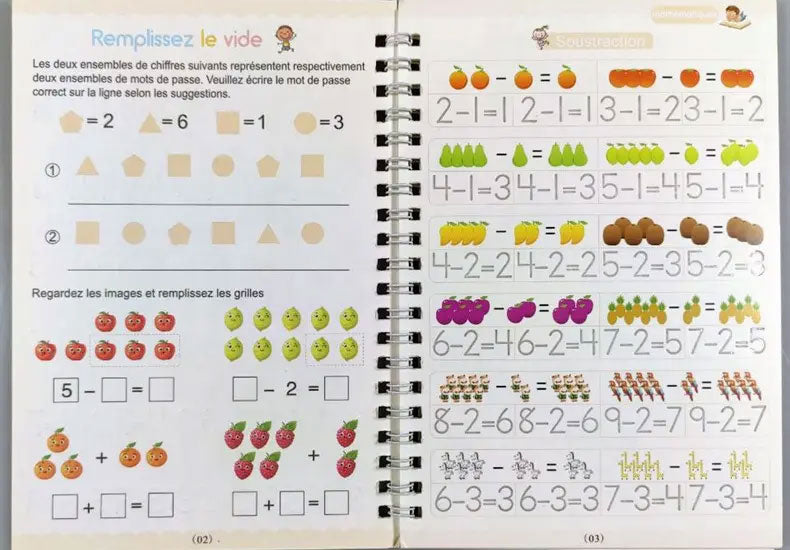 Remplissez le vide
Les deux ensembles de chiffres suivants représentent respectivement
deux ensembles de mots de passe. Veuillez écrire le mot de passe
correct sur la ligne selon les suggestions.
=2 =6 =1 =3
①
②
Regardez les images et remplissez les grilles
5 - =
- 2 =
+
+
+ =
+ =
(02)
mathématiques
Soustraction
- =
- =
2-1=1 2-1=1 3-1=2 3-1=2
- =
- =
4-1=3 4-1=3 5-1=4 5-1=4
- =
- =
4-2=2 4-2=2 5-2=3 5-2=3
- =
- =
6-2=4 6-2=4 7-2=5 7-2=5
- =
- =
8-2=6 8-2=6 9-2=7 9-2=7
- =
- =
6-3=3 6-3=3 7-3=4 7-3=4
(03)